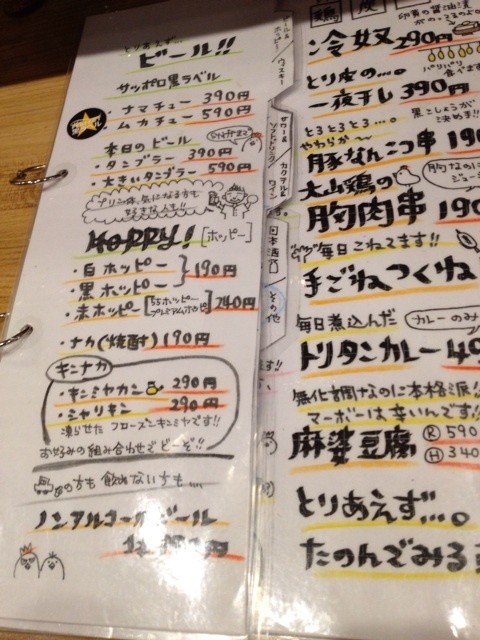 とりあえず...
ビール!!
サッポロ黒ラベル
・ナマチュー 390円
・ムカチュー 590円
本日のビール
・タンブラー 390円
・大きいタンブラー 590円
プリン体、気になる方も
HOPPY! [ホッピー]
・白ホッピー
・黒ホッピー } 190円
・赤ホッピー [55ホッピー 240円
・ナカ(焼酎) 190円
キンナカ
・キンミヤカン 290円
・シャリキン 290円
凍らせたフローズンキンミヤです!!
お好みの組み合わせでどーぞ!!
の方も飲めない方も...
ノンアルコールビール
ビール&
ホッピー
ウイスキー
サワー&
ソフトドリンク
カクテル&
ワイン
日本酒
その他
鶏
冷奴 290円
とり皮の...。
一夜干し 390円
パリパリ
食べ
黒こしょうが
決め手!!
とろとろ...。
やわらか〜
豚なんこつ串 190
大山鶏の
胸肉串 190
胸なのに
ジュー
毎日こねてます!!
手ごねつくね
毎日煮込んだ
カレーのみ
トリタンカレー 49
無化調なのに本格派!!
マーボーは、辛いんです!!
麻婆豆腐 Ⓡ590
Ⓗ340
とりあえず...。
たのんでみる